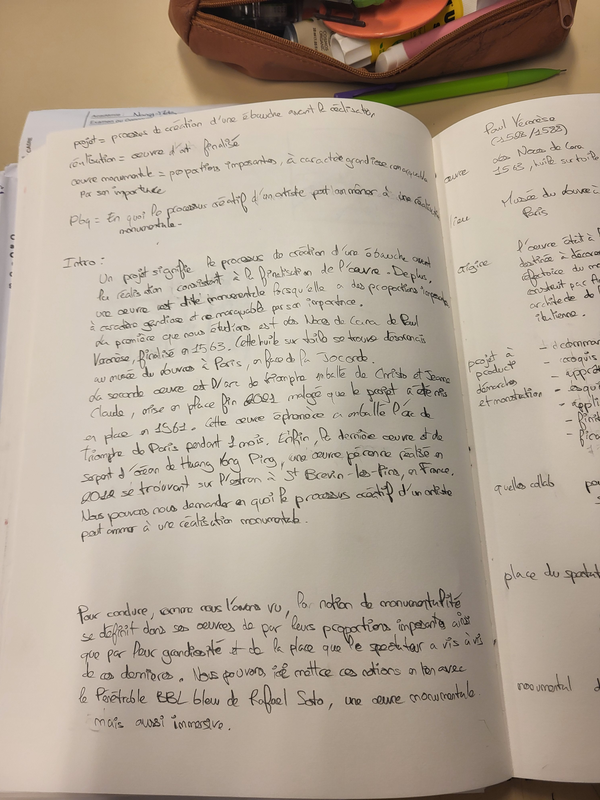 projet = processus de création d'une ébauche avant la réalisation
réalisation = oeuvre d'art finalisé
oeuvre monumentale = proportions imposantes, à caractère grandiose remarquable
par son importance
Pbq = En quoi le processus créatif d'un artiste peut amener à une réalisation
monumentale.
Intro :
Un projet signifie le processus de création d'une ébauche avant
la réalisation consistant à la finalisation de l'oeuvre. De plus,
une oeuvre est dite monumentale lorsqu'elle a des proportions imposantes
à caractère gandiose et remarquable par son importance.
La première que nous étudions est des Noces de Cana de Paul
Veronèse, finalisé en 1563. Cette huile sur toile se trouve désormais
au musée du Louvres à Paris, en face de la Joconde.
La seconde oeuvre est l'Arc de triomphe emballé de Christo et Jeanne
Claude, mise en place fin 2021 malgré que le projet a été mis
en place en 1961. Cette oeuvre éphémère a emballé l'Arc de
triomphe de Paris pendant 1 mois. Enfin, la dernière oeuvre est le
serpent d'océan de Huang Yong Ping, une oeuvre pérenne réalisé en
2012 se trouvant sur l'estran à St Brevin-les-Pins, en France.
Nous pouvons nous demander en quoi le processus créatif d'un artiste
peut amener à une réalisation monumentale.
Pour conclure, comme nous l'avons vu, la notion de monumentalité
se définit dans ses oeuvres de par leurs proportions imposantes ainsi
que par leur grandiosité et de la place que le spectateur a vis à vis
de ces dernières. Nous pouvons mettre ces notions en lien avec
le Pénétrable BBL bleu de Rafael Soto, une oeuvre monumentale
mais aussi immersive.
Paul Veronèse
(1528/1588)
des Noces de Cana
1563, huile sur toile
oeuvre
lieu
Musée du Louvre à
Paris
origine
l'oeuvre était à l'
destinée à décorer
réfectoire du m
construit par
architecte de
italienne.
projet à
product
démarches
et monstration
- croquis
quelles collab
place du spectat
monumental